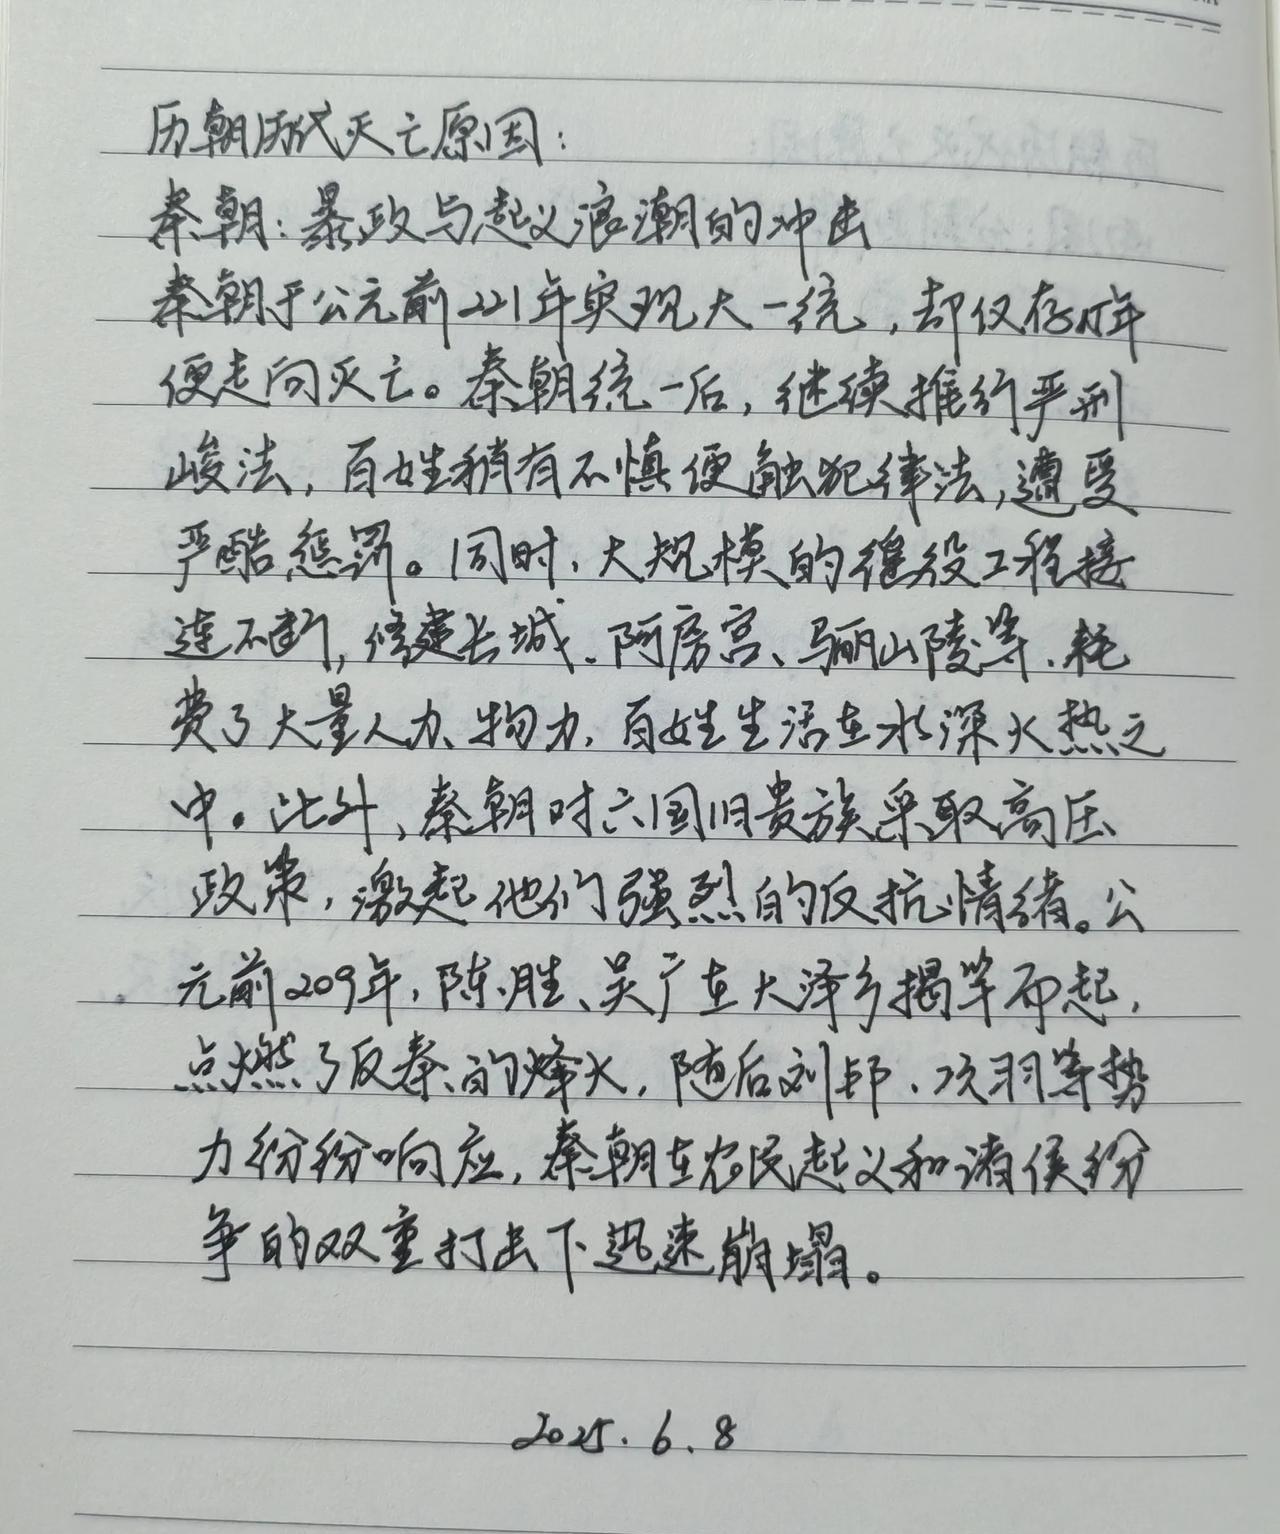 历朝历代灭亡原因：
秦朝：暴政与起义浪潮的冲击
秦朝于公元前221年实现大一统，却仅存15年
便走向灭亡。秦朝统一后，继续推行严刑
峻法，百姓稍有不慎便触犯律法，遭受
严酷惩罚。同时，大规模的徭役工程接
连不断，修建长城、阿房宫、骊山陵等、耗
费了大量人力、物力，百姓生活在水深火热之
中。此外，秦朝对六国旧贵族采取高压
政策，激起他们强烈的反抗情绪。公
元前209年，陈胜、吴广在大泽乡揭竿而起，
点燃了反秦的烽火，随后刘邦、项羽等势
力纷纷响应，秦朝在农民起义和诸侯纷
争的双重打击下迅速崩塌。
2025.6.8